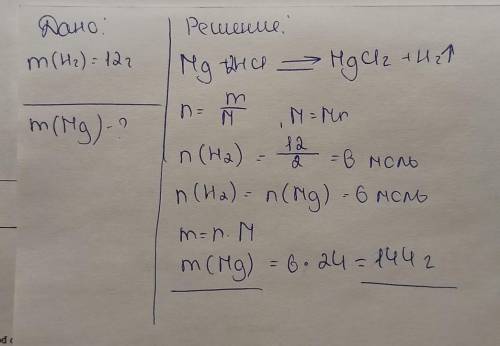 Дано:
m(H₂) = 12г
m(Mg) - ?
Решение:
Mg + 2HCl ⟹ MgCl₂ + H₂↑
n = m/M , M = Mr
n(H₂) = 12/2 = 6 моль
n(H₂) = n(Mg) = 6 моль
m = n · M
m(Mg) = 6 · 24 = 144 г